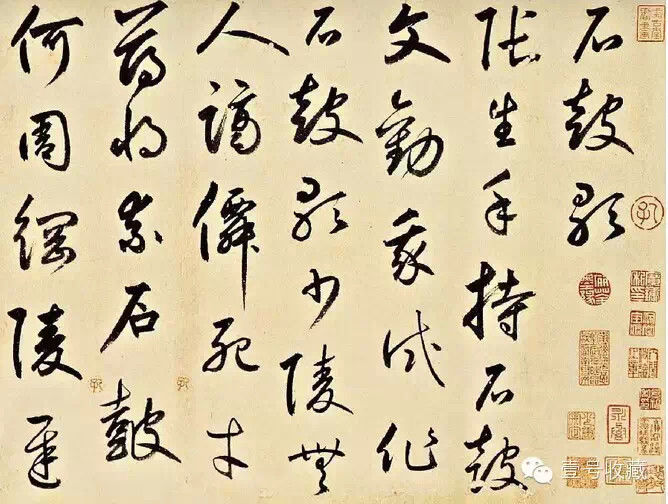 石鼓歌
張生手持石鼓
文勸我試作
石鼓歌少陵無
人謫僊死才
薄將柰石鼓
何周綱陵遲
壹号收藏